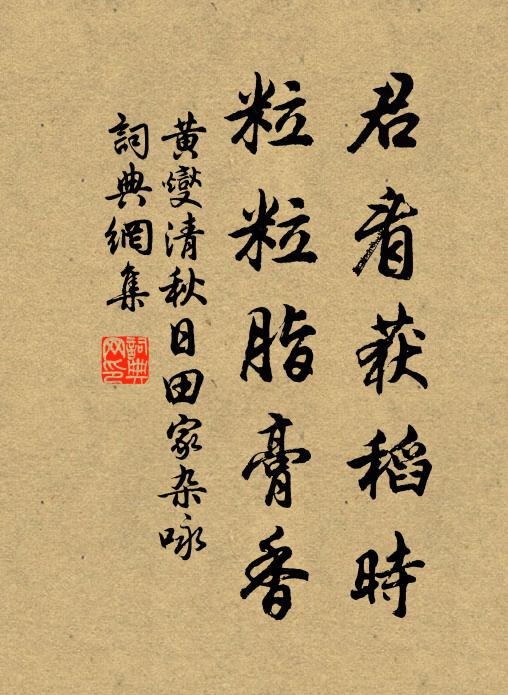 君看获稻時
粒粒脂膏香
黄燮清秋日田家杂咏
詞典網集
詞典网印